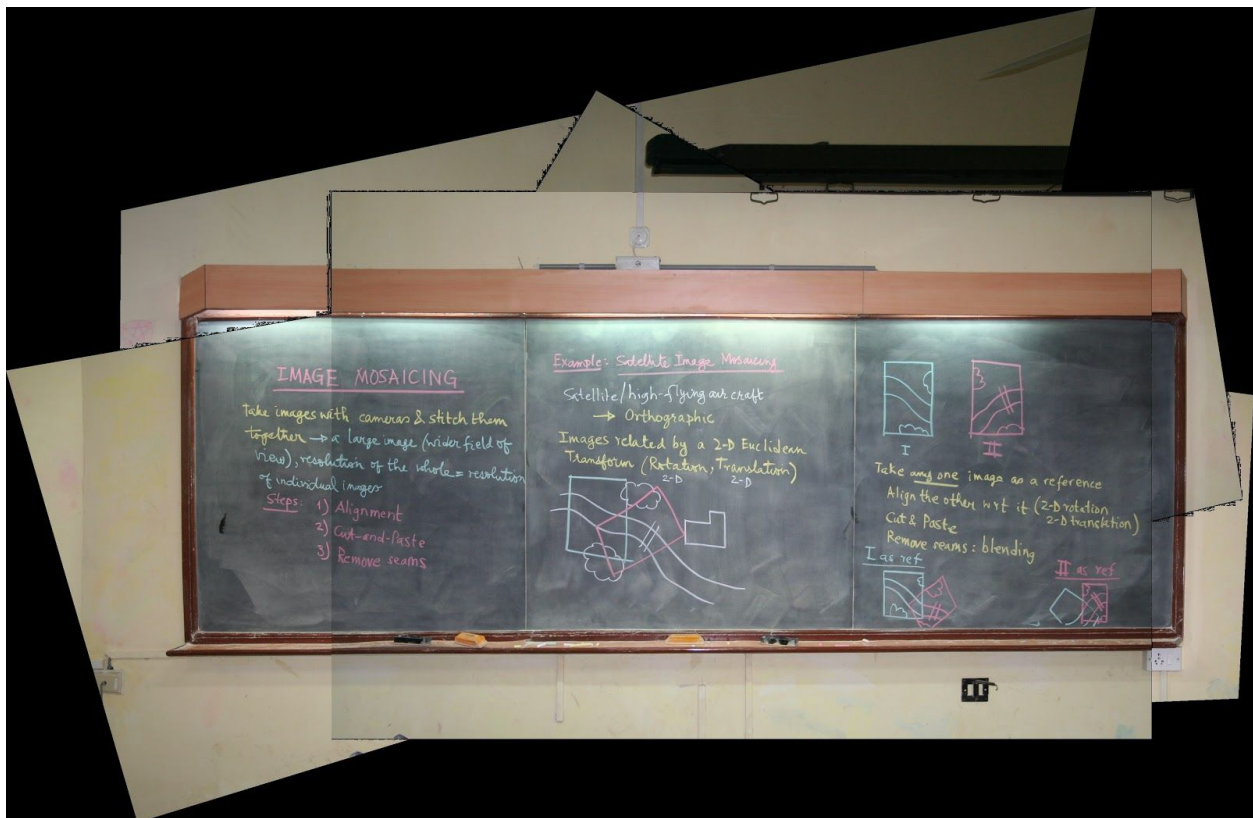 IMAGE MOSAICING
Take images with cameras & stitch them
together → a large image (wider field of
view), resolution of the whole = resolution
of individual images
Steps: 1) Alignment
2) Cut-and-Paste
3) Remove seams
Example: Satellite Image Mosaicing
Satellite/high-flying aircraft
→ Orthographic
Images related by a 2-D Euclidean
Transform (Rotation, Translation)
2-D 2-D
I II
Take any one image as a reference
Align the other wrt it (2-D rotation
2-D translation)
Cut & Paste
Remove seams: blending
I as ref
II as ref